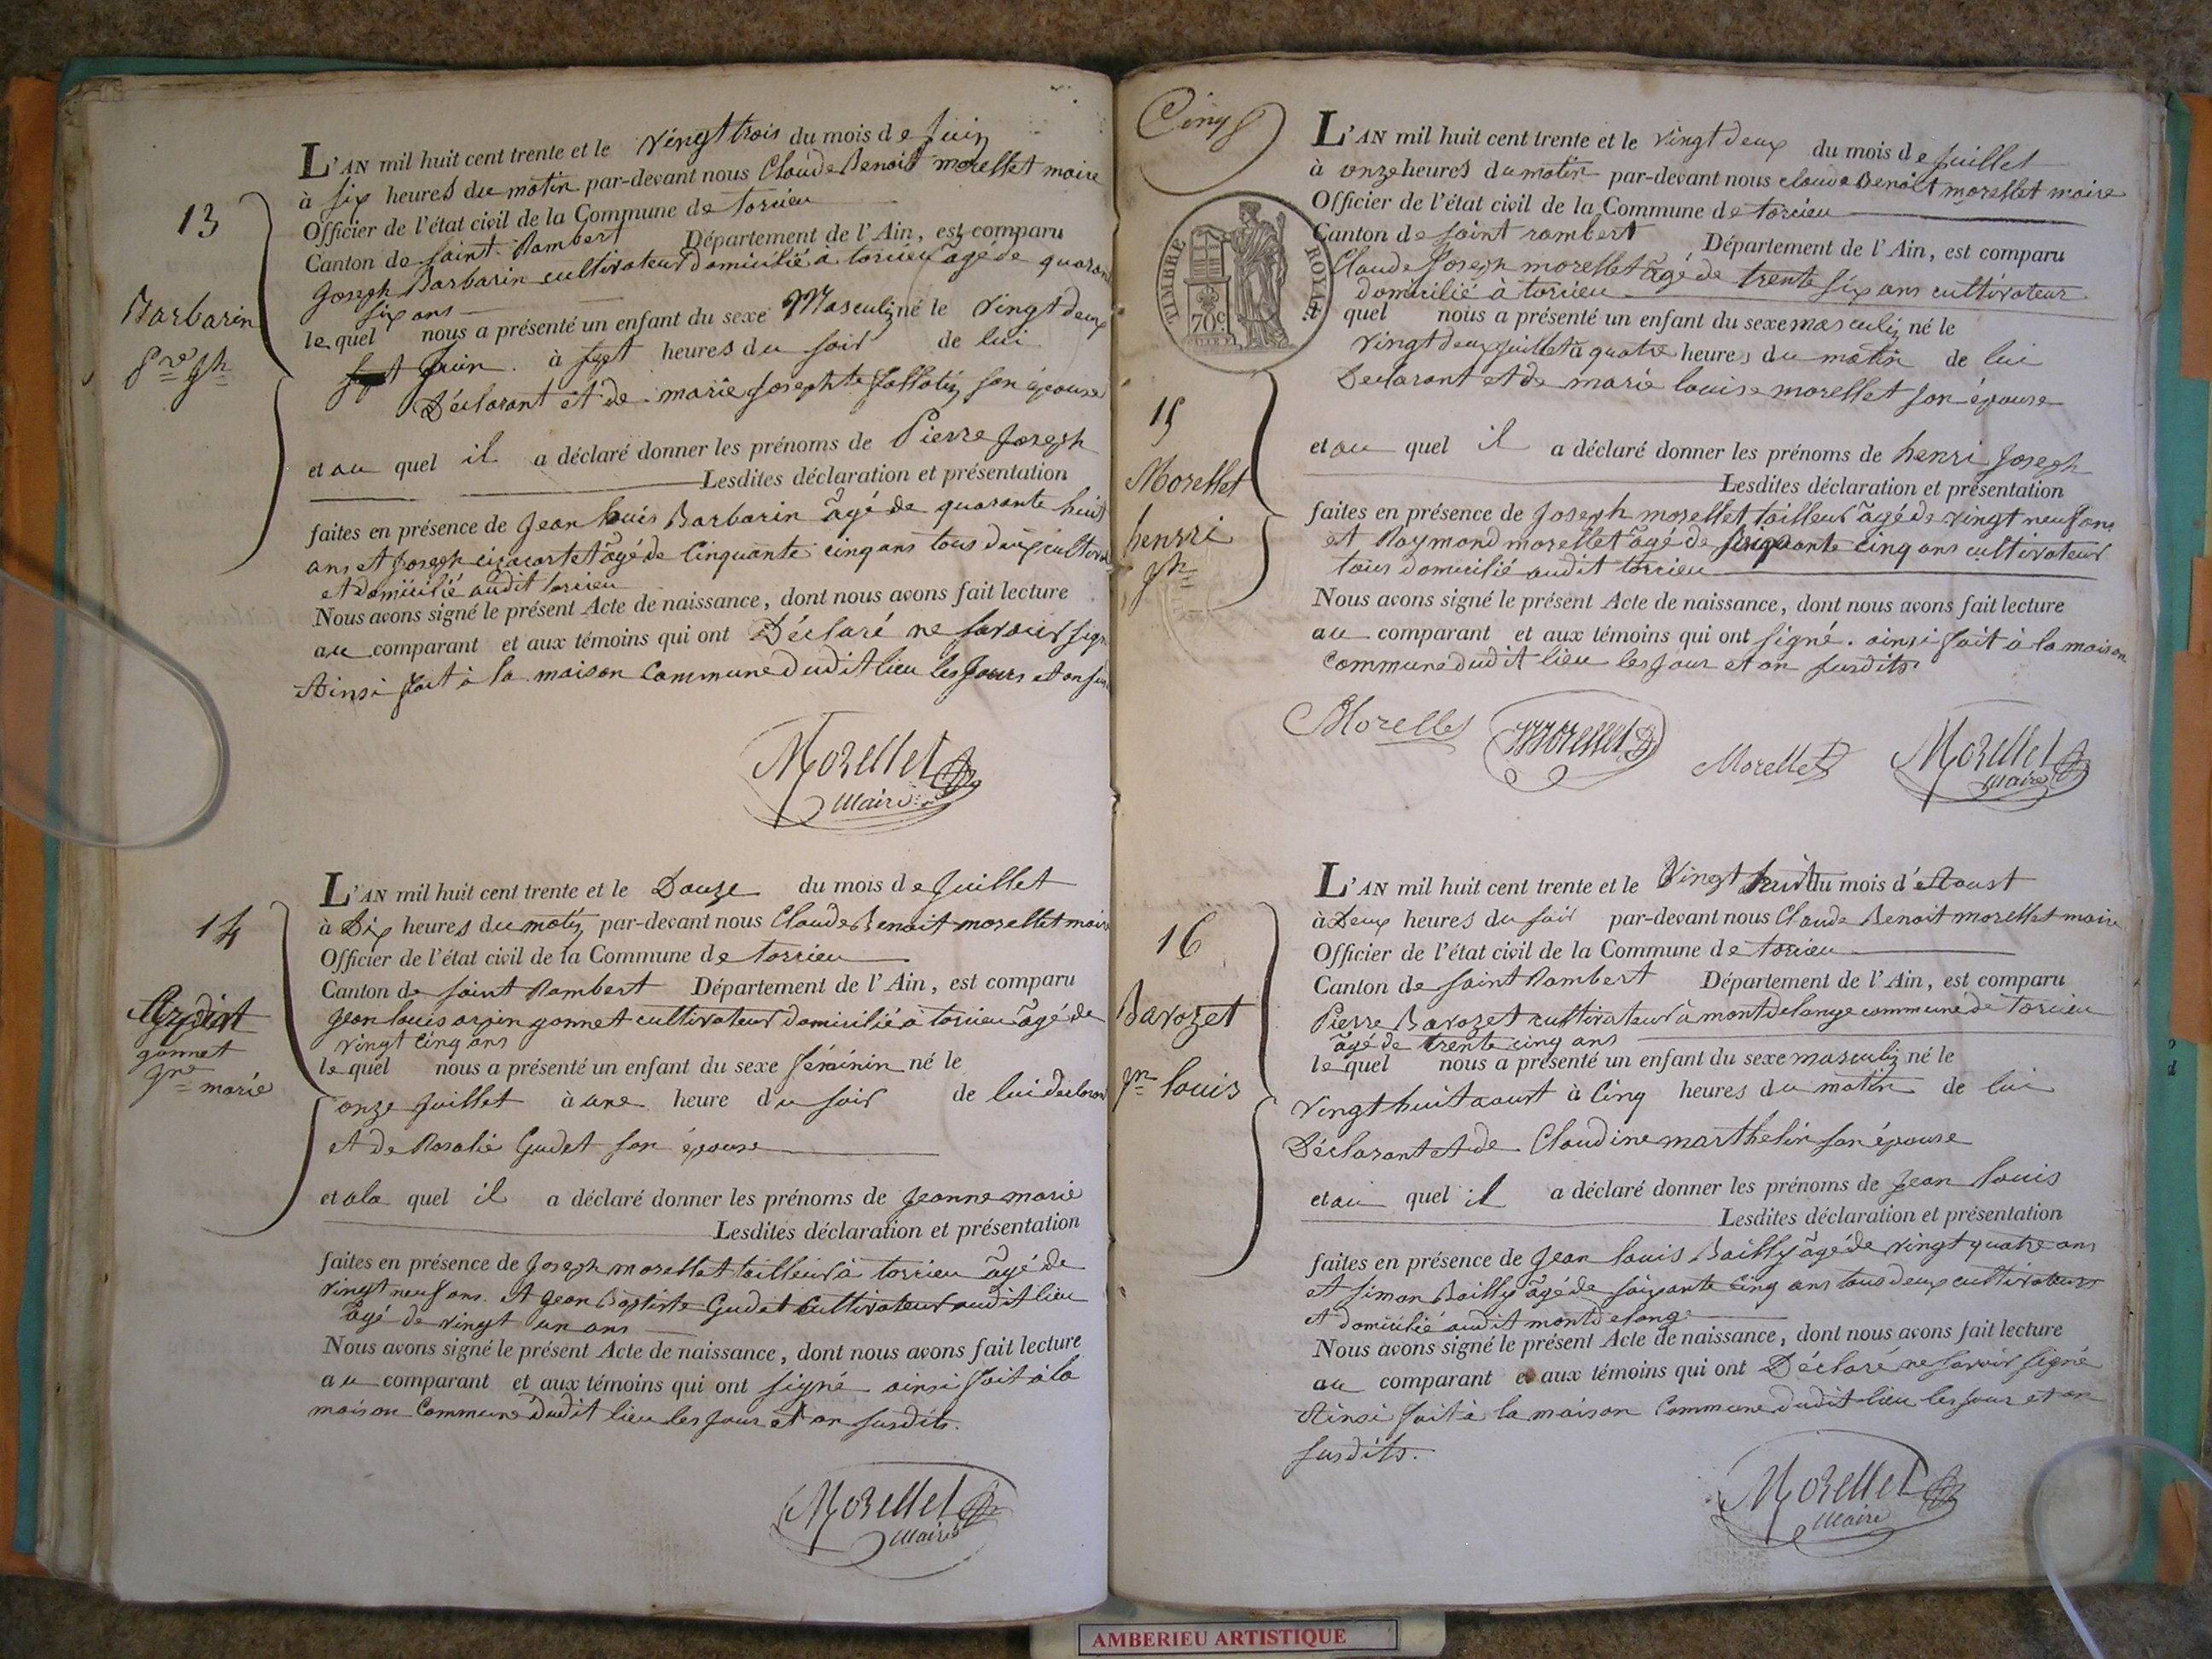 L'AN mil huit cent trente et le vingt trois du mois de Juin
à six heures du matin par-devant nous Claude Benoit morellet maire
Officier de l'état civil de la Commune de torcieu
Canton de saint Rambert Département de l'Ain, est comparu
Joseph Barbarin cultivateur domicilié à torcieu âgé de quarante
six ans
le quel nous a présenté un enfant du sexe Masculin né le vingt deux
Juin à sept heures du soir de lui
Déclarant et de marie Josephte son épouse
et au quel il a déclaré donner les prénoms de Pierre Joseph
Lesdites déclaration et présentation
faites en présence de Jean louis Barbarin âgé de quarante huit
ans et Joseph âgé de Cinquante cinq ans tous deux
et domicilié audit torcieu
Nous avons signé le présent Acte de naissance, dont nous avons fait lecture
au comparant et aux témoins qui ont Déclaré ne savoir
Ainsi fait à la maison Commune dudit lieu les Jours et an
Morellet
Maire
13
Barbarin
Pre Jh
L'AN mil huit cent trente et le Douze du mois de Juillet
à Dix heures du matin par-devant nous Claude Benoit morellet maire
Officier de l'état civil de la Commune de torcieu
Canton de saint Rambert Département de l'Ain, est comparu
Jean louis arpin gonnet cultivateur domicilié à torcieu âgé de
vingt cinq ans
le quel nous a présenté un enfant du sexe féminin né le
onze Juillet à une heure du soir de lui declarant
et de Rosalie Gudet son épouse
et a la quel il a déclaré donner les prénoms de Jeanne marie
Lesdites déclaration et présentation
faites en présence de Joseph morellet tailleur à torcieu âgé de
vingt neuf ans et Jean Baptiste Gudet Cultivateur audit lieu
âgé de vingt un ans
Nous avons signé le présent Acte de naissance, dont nous avons fait lecture
au comparant et aux témoins qui ont signé ainsi fait à la
maison Commune Dudit lieu les Jour et an susdits.
Morellet
Maire
14
gonnet
Jne marie
Cinq
TIMBRE ROYAL
70c
L'AN mil huit cent trente et le vingt deux du mois de Juillet
à onze heures du matin par-devant nous claude Benoit morellet maire
Officier de l'état civil de la Commune de torcieu
Canton de saint rambert Département de l'Ain, est comparu
Claude Joseph morellet âgé de trente six ans cultivateur
domicilié à torcieu
quel nous a présenté un enfant du sexe masculin né le
vingt deux Juillet à quatre heures du matin de lui
Declarant et de marie louise morellet son épouse
et au quel il a déclaré donner les prénoms de henri Joseph
Lesdites déclaration et présentation
faites en présence de Joseph morellet tailleur âgé de vingt neuf ans
et Raymond morellet âgé de cinquante cinq ans cultivateur
tous domicilié audit torcieu
Nous avons signé le présent Acte de naissance, dont nous avons fait lecture
au comparant et aux témoins qui ont signé. ainsi fait à la maison
Commune dudit lieu les Jour et an susdits.
Morellet Morellet Morellet Morellet
Maire
15
Morellet
henrri
Jh
L'AN mil huit cent trente et le Vingt huit du mois d'Aoust
à Deux heures du soir par-devant nous Claude Benoit morellet maire
Officier de l'état civil de la Commune de torcieu
Canton de saint Rambert Département de l'Ain, est comparu
Pierre Bavozet cultivateur à montdelange commune de torcieu
âgé de trente cinq ans
le quel nous a présenté un enfant du sexe masculin né le
vingt huit aoust à Cinq heures du matin de lui
Déclarant et de Claudine marthelin son épouse
et au quel il a déclaré donner les prénoms de Jean louis
Lesdites déclaration et présentation
faites en présence de Jean louis Bailly âgé de vingt quatre ans
et simon Bailly âgé de soixante cinq ans tous deux cultivateurs
et domicilié audit montdelange
Nous avons signé le présent Acte de naissance, dont nous avons fait lecture
au comparant et aux témoins qui ont Déclaré ne savoir signé
Ainsi fait à la maison Commune dudit lieu les Jour et an
susdits.
Morellet
Maire
16
Bavozet
Jn louis
AMBERIEU ARTISTIQUE